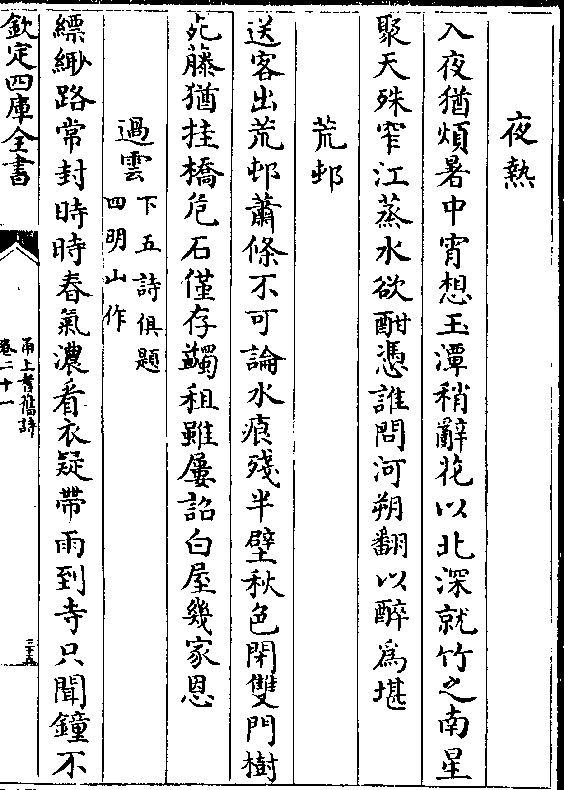 夜熱
入夜猶煩暑中宵想玉潭稍辭花以北深就竹之南星
聚天殊窄江蒸水欲酣憑誰問河朔翻以醉爲堪
荒邨
送客出荒邨蕭條不可論水痕殘半壁秋色閉雙門樹
死藤猶挂橋危石僅存蠲租雖屢詔白屋幾家恩
過雲
下五詩俱題
四明山作
縹緲路常封時時春氣濃看衣疑帶雨到寺只聞鐘不
欽定四庫全書
甬上耆舊詩
卷二十一
三十五